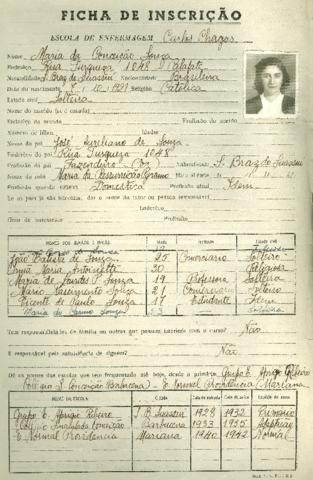 FICHA DE INSCRIÇÃO
ESCOLA DE ENFERMAGEM Carlos Chagas
Nome Maria da Conceição Souza
Rua Turqueza 1048
Naturalidade Braz do Suassui Nacionalidade Brasileira
Data do nascimento 8-10-1921 Religião Católica
Estado civil Solteira
Nome do marido (se é casada)
Endereço do marido Profissão do marido
Número de filhos Idades
Nome do pai José Aureliano de Souza
Endereço do pai Rua Turqueza 1048
Profissão do pai Fazendeiro Naturalidade S. Braz do Suassui
Nome da mãe Maria da
Profissão Doméstica Profissão atual Idem
Se os pais são falecidos, dar o nome do tutor ou pessoa responsável
Endereço
Grau de parentesco Profissão
NOMES DOS IRMÃOS E IRMÃS IDADE PROFISSÃO ESTADO CIVIL
João Batista de Souza 25 Comerciario Solteiro
Maria Antonieta 30 Religiosa
Maria de Lourdes P. Souza 19 Professora Solteira
Mario Nascimento Souza 21 Comerciario Solteiro
Vicente de Paulo Souza 17 Estudante Idem
Maria do Carmo Souza
Tem responsabilidades de família ou outras que possam interferir com o curso? Não
É responsável pela subsistência de alguém? Não
Dê os nomes das escolas que tem frequentado até hoje, desde a primária Grupo E. Ribeiro
Colégio I. Conceição Barbacena) - E. Normal Providencia (Mariana
NOME DA ESCOLA Cidade Data da entrada Data da saída Curso
Grupo E. Ribeiro S. B. Suassui 1928 1932 Primario
Colégio Imaculada Conceição Barbacena 1933 1935
E. Normal Providencia Mariana 1940 1942 Normal